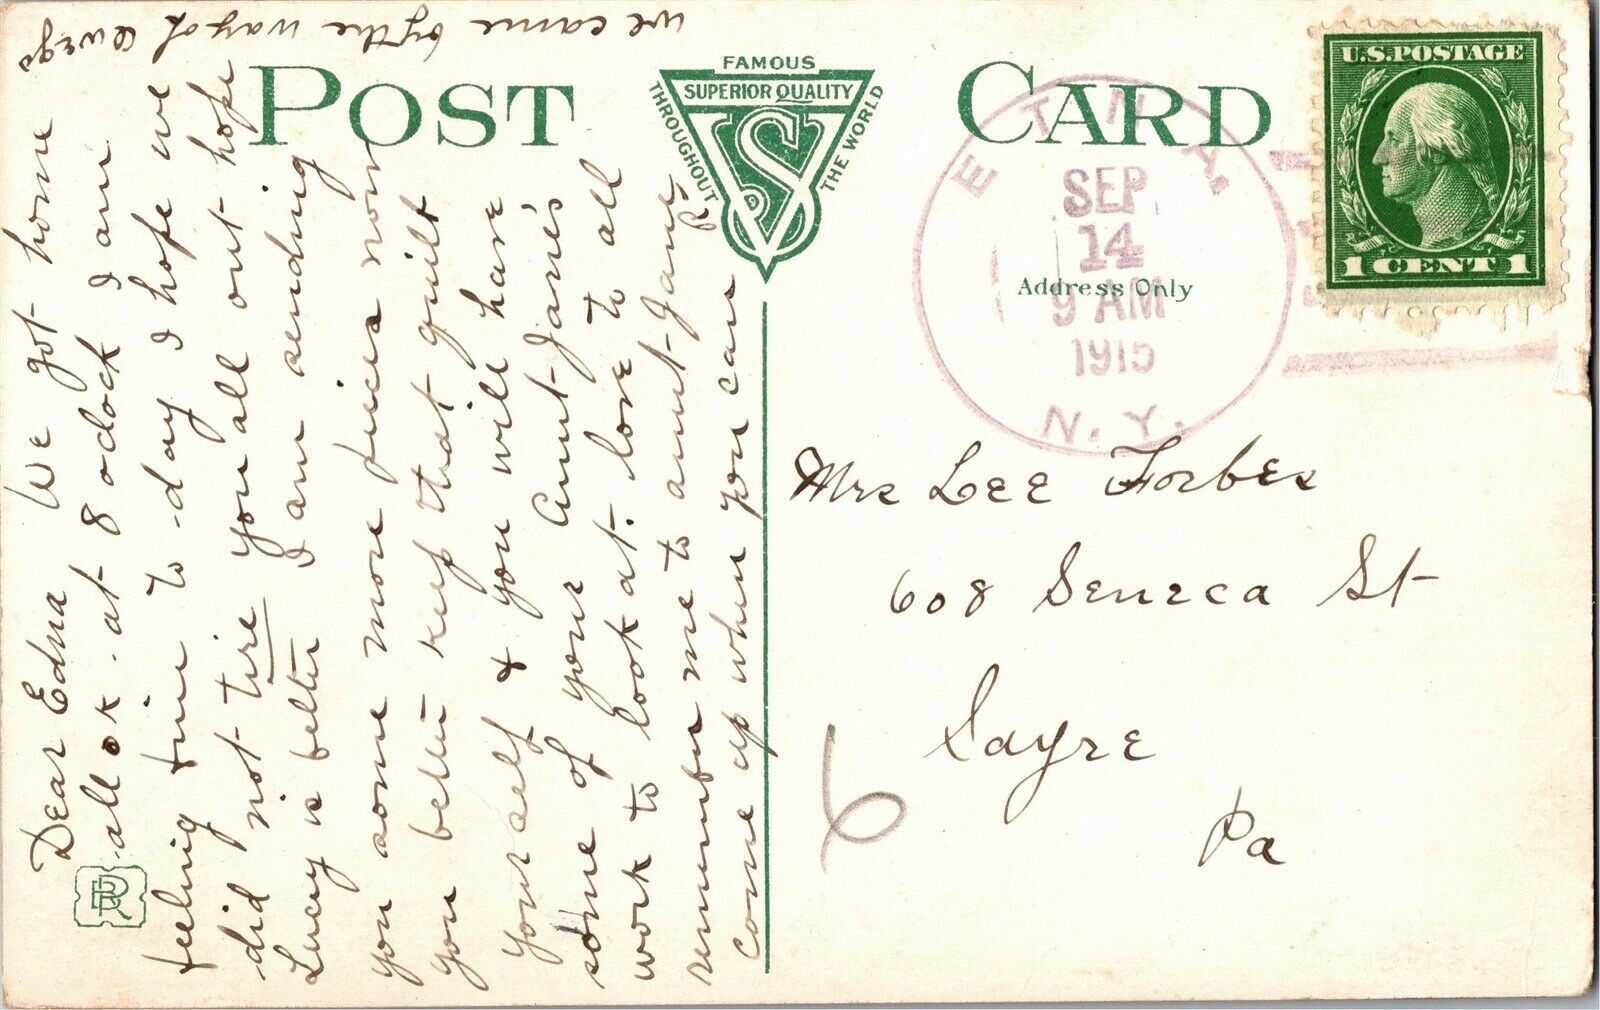 POST CARD
FAMOUS
SUPERIOR QUALITY
THROUGHOUT
THE WORLD
U.S. POSTAGE
1 CENT 1
ETNA.
SEP
14
9 AM
1915
N.Y.
Address Only
Mrs Lee Forbes
608 Seneca St
Sayre
Pa
6
Dear Edna We got home
all ok. at 8 oclock I am
feeling fine to-day I hope we
did not tire you all out hope
Lucy is better I am sending
you some more pieces now
you better keep that quilt
yourself & you will have
some of your Aunt Jane's
work to look at. love to all
remember me to aunt Jane
come up when you can
R-
we came by the way of Owego